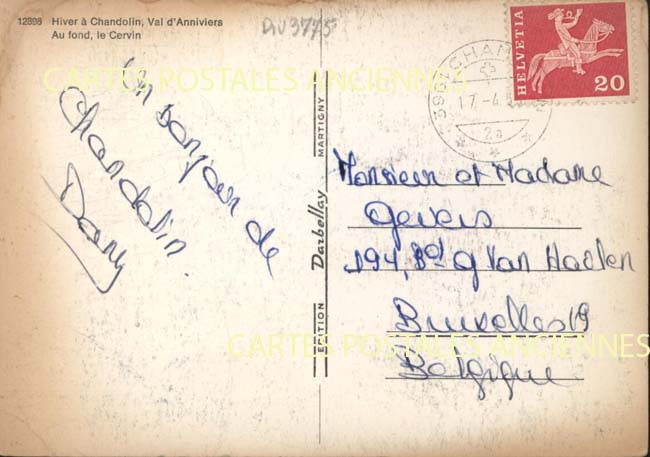 12398 Hiver à Chandolin, Val d'Anniviers
Au fond, le Cervin
DIV3775
CARTES POSTALES ANCIENNES
Un bonjour de
Chandolin.
Dany
EDITION Darbellay MARTIGNY
HELVETIA
20
17.-4.
2a
Monsieur et Madame
Gevers
194, Bd G Van Haelen
Bruxelles 19
Belgique
CARTES POSTALES ANCIENNES